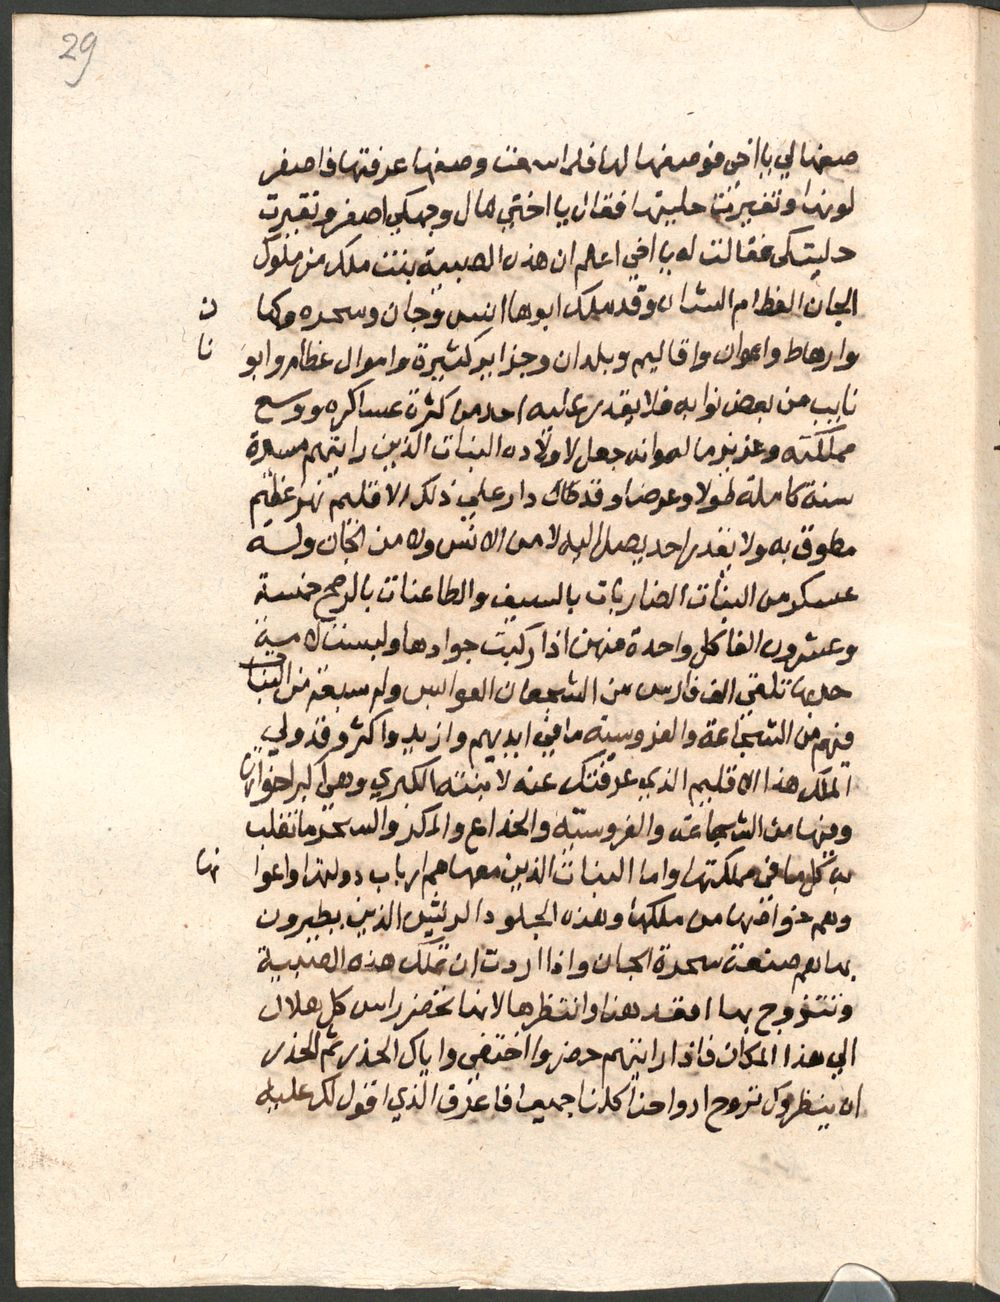 29
صفها لي يا اخي فوصفها لها فلما سمعت وصفها عرفتها فاصفر
لونها وتغيرت حليتها فقال يا اختي مال وجهكي اصفر وتغيرت
حليتكي فقالت له يا اخي اعلم ان هذه الصبية بنت ملك من ملوك
الجان العظام الشان وقد ملك ابوها انس وجان وسحره وكها ن
وارهاط واعوان واقاليم وبلدان وجزاير كثيرة واموال عظام وابو نا
نايب من بعض نوابه فلا يقدر عليه احد من كثرة عساكره ووسع
مملكته وعزير ماله وانه جعل لاولاده البنات الذين رايتهم مسيرة
سنة كاملة طولا وعرضا وقد دار علي ذلك الاقليم نهر عظيم
مطوق به ولا يقدر احد يصل اليه لا من الانس ولا من الجان وله
عسكر من البنات الضاربات بالسيف والطاعنات بالرمح خمسة
وعشرون الفا كل واحدة منهن اذا ركبت جوادها ولبست لامة
حربها تلقي الف فارس من الشجعان العوابس وله سبعة من البنات
فيهم من الشجاعة والفروسية ما في ايديهم وازيد واكثر وقد ولي
الملك هذا الاقليم الذي عرفتك عنه لابنته الكبري وهي اكبر اخواتها
وفيها من الشجاعة والفروسية والخداع والمكر والسحر ما تغلب
به كل من في مملكتها واما البنات الذين معها هم ارباب دولتها واعوا نها
وهم خواصها من ملكها وهذه الجلود الريش الذين يطيرون
بها هم صنعة سحرة الجان واذا اردت ان تملك هذه الصبية
وتتزوج بها اقعد هنا وانتظرها لانها تحضر راس كل هلال
الي هذا المكان فاذا رايتهم حضروا اختفي واياك الحذر ثم الحذر
ان ينظروك تروح ارواحنا كلنا جميعا فاعرف الذي اقول لك عليه